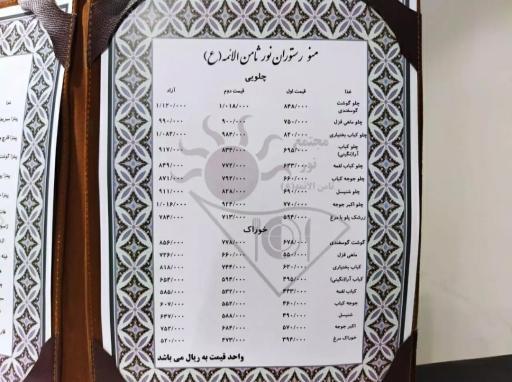 منو رستوران نور ثامن الائمه (ع)
چلویی
غذا قیمت اول قیمت دوم آزاد
چلو گوشت گوسفندی ۸۴۸/۰۰۰ ۱/۰۱۸/۰۰۰ ۱/۱۲۰/۰۰۰
چلو ماهی قزل ۷۵۰/۰۰۰ ۹۰۰/۰۰۰ ۹۹۰/۰۰۰
چلو کباب بختیاری ۸۲۰/۰۰۰ ۹۸۴/۰۰۰ ۱/۰۸۲/۰۰۰
چلو کباب آرا(نگینی) ۶۹۵/۰۰۰ ۸۳۴/۰۰۰ ۹۱۷/۰۰۰
چلو کباب لقمه ۶۴۳/۰۰۰ ۷۷۲/۰۰۰ ۸۴۹/۰۰۰
چلو جوجه کباب ۶۶۰/۰۰۰ ۷۹۲/۰۰۰ ۸۷۱/۰۰۰
چلو شنیسل ۶۹۰/۰۰۰ ۸۲۸/۰۰۰ ۹۱۱/۰۰۰
چلو اکبر جوجه ۷۷۰/۰۰۰ ۹۲۴/۰۰۰ ۱/۰۱۶/۰۰۰
زرشک پلو با مرغ ۵۹۴/۰۰۰ ۷۱۳/۰۰۰ ۷۸۴/۰۰۰
خوراک
گوشت گوسفندی ۶۴۸/۰۰۰ ۷۷۸/۰۰۰ ۸۵۶/۰۰۰
ماهی قزل ۵۵۰/۰۰۰ ۶۶۰/۰۰۰ ۷۲۶/۰۰۰
کباب بختیاری ۶۲۰/۰۰۰ ۷۴۴/۰۰۰ ۸۱۸/۰۰۰
کباب آرا(نگینی) ۴۹۵/۰۰۰ ۵۹۴/۰۰۰ ۶۵۴/۰۰۰
کباب لقمه ۴۴۳/۰۰۰ ۵۳۲/۰۰۰ ۵۸۵/۰۰۰
جوجه کباب ۴۶۰/۰۰۰ ۵۵۲/۰۰۰ ۶۰۷/۰۰۰
شنیسل ۴۹۰/۰۰۰ ۵۸۸/۰۰۰ ۶۴۷/۰۰۰
اکبر جوجه ۵۷۰/۰۰۰ ۶۸۴/۰۰۰ ۷۵۲/۰۰۰
خوراک مرغ ۳۹۴/۰۰۰ ۴۷۳/۰۰۰ ۵۲۰/۰۰۰
واحد قیمت به ریال می باشد
مجتمع
نور
ثامن الائمه(ع)